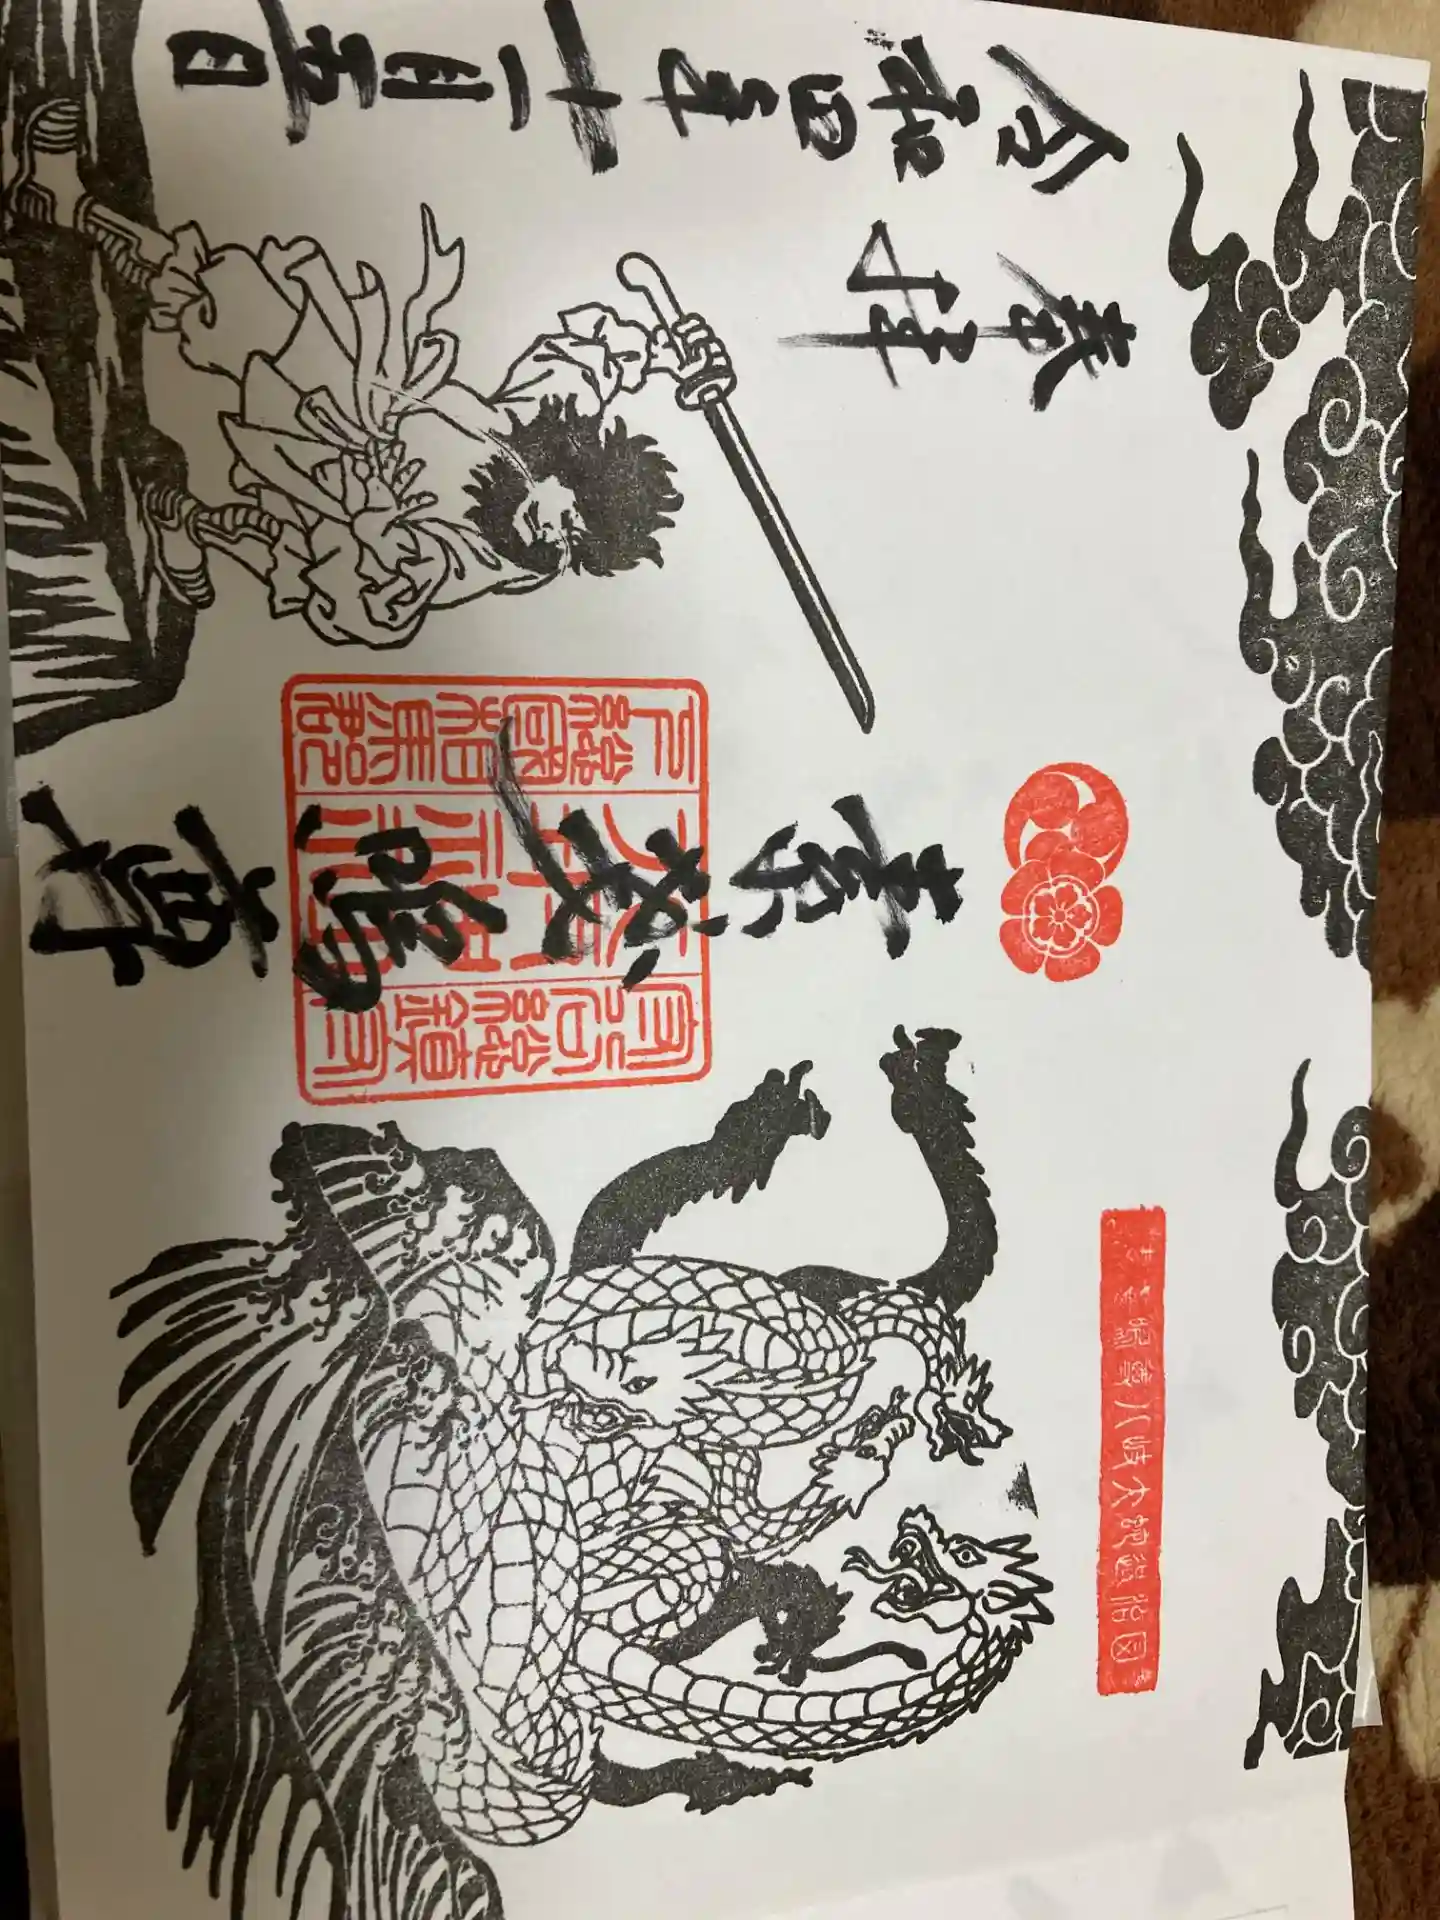 素戔嗚尊八岐大蛇退治図
素戔嗚尊
奉拝
令和四年十一月五日